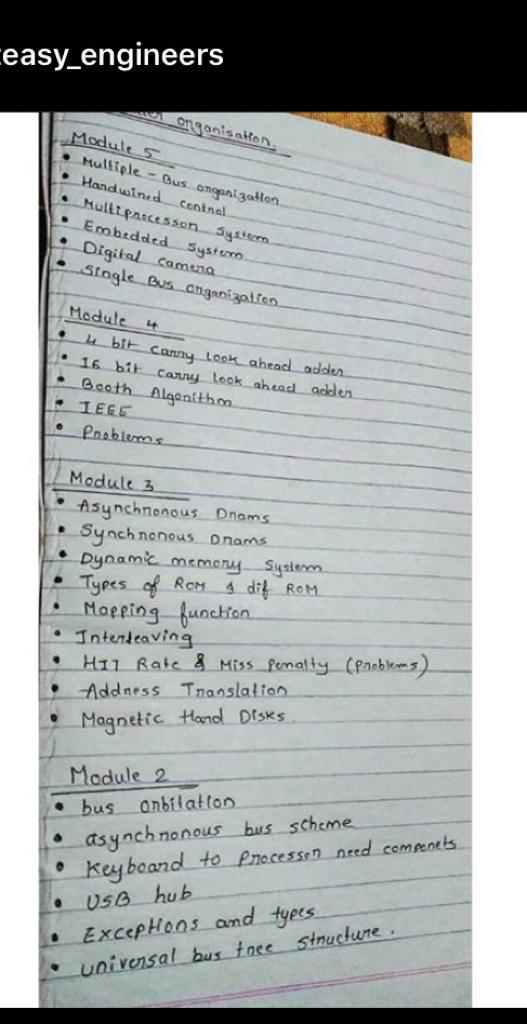 easy_engineers
organisation.
Module 5
• Multiple - Bus organization
• Hardwired control
• Multiprocessor System
• Embedded System
• Digital camera
• Single Bus organization
Module 4
• 4 bit carry look ahead adder
• 16 bit carry look ahead adder
• Booth Algorithm
• IEEE
• Problems
Module 3
• Asynchronous Drams
• Synchronous Drams
• Dynamic memory System
• Types of ROM & dif ROM
• Mapping function
• Interleaving
• HIT Rate & Miss Penalty (Problems)
• Address Translation
• Magnetic Hard Disks
Module 2
• bus arbilation
• asynchronous bus scheme
• Keyboard to Processor need componets
• USB hub
• Exceptions and types
• universal bus tree structure.